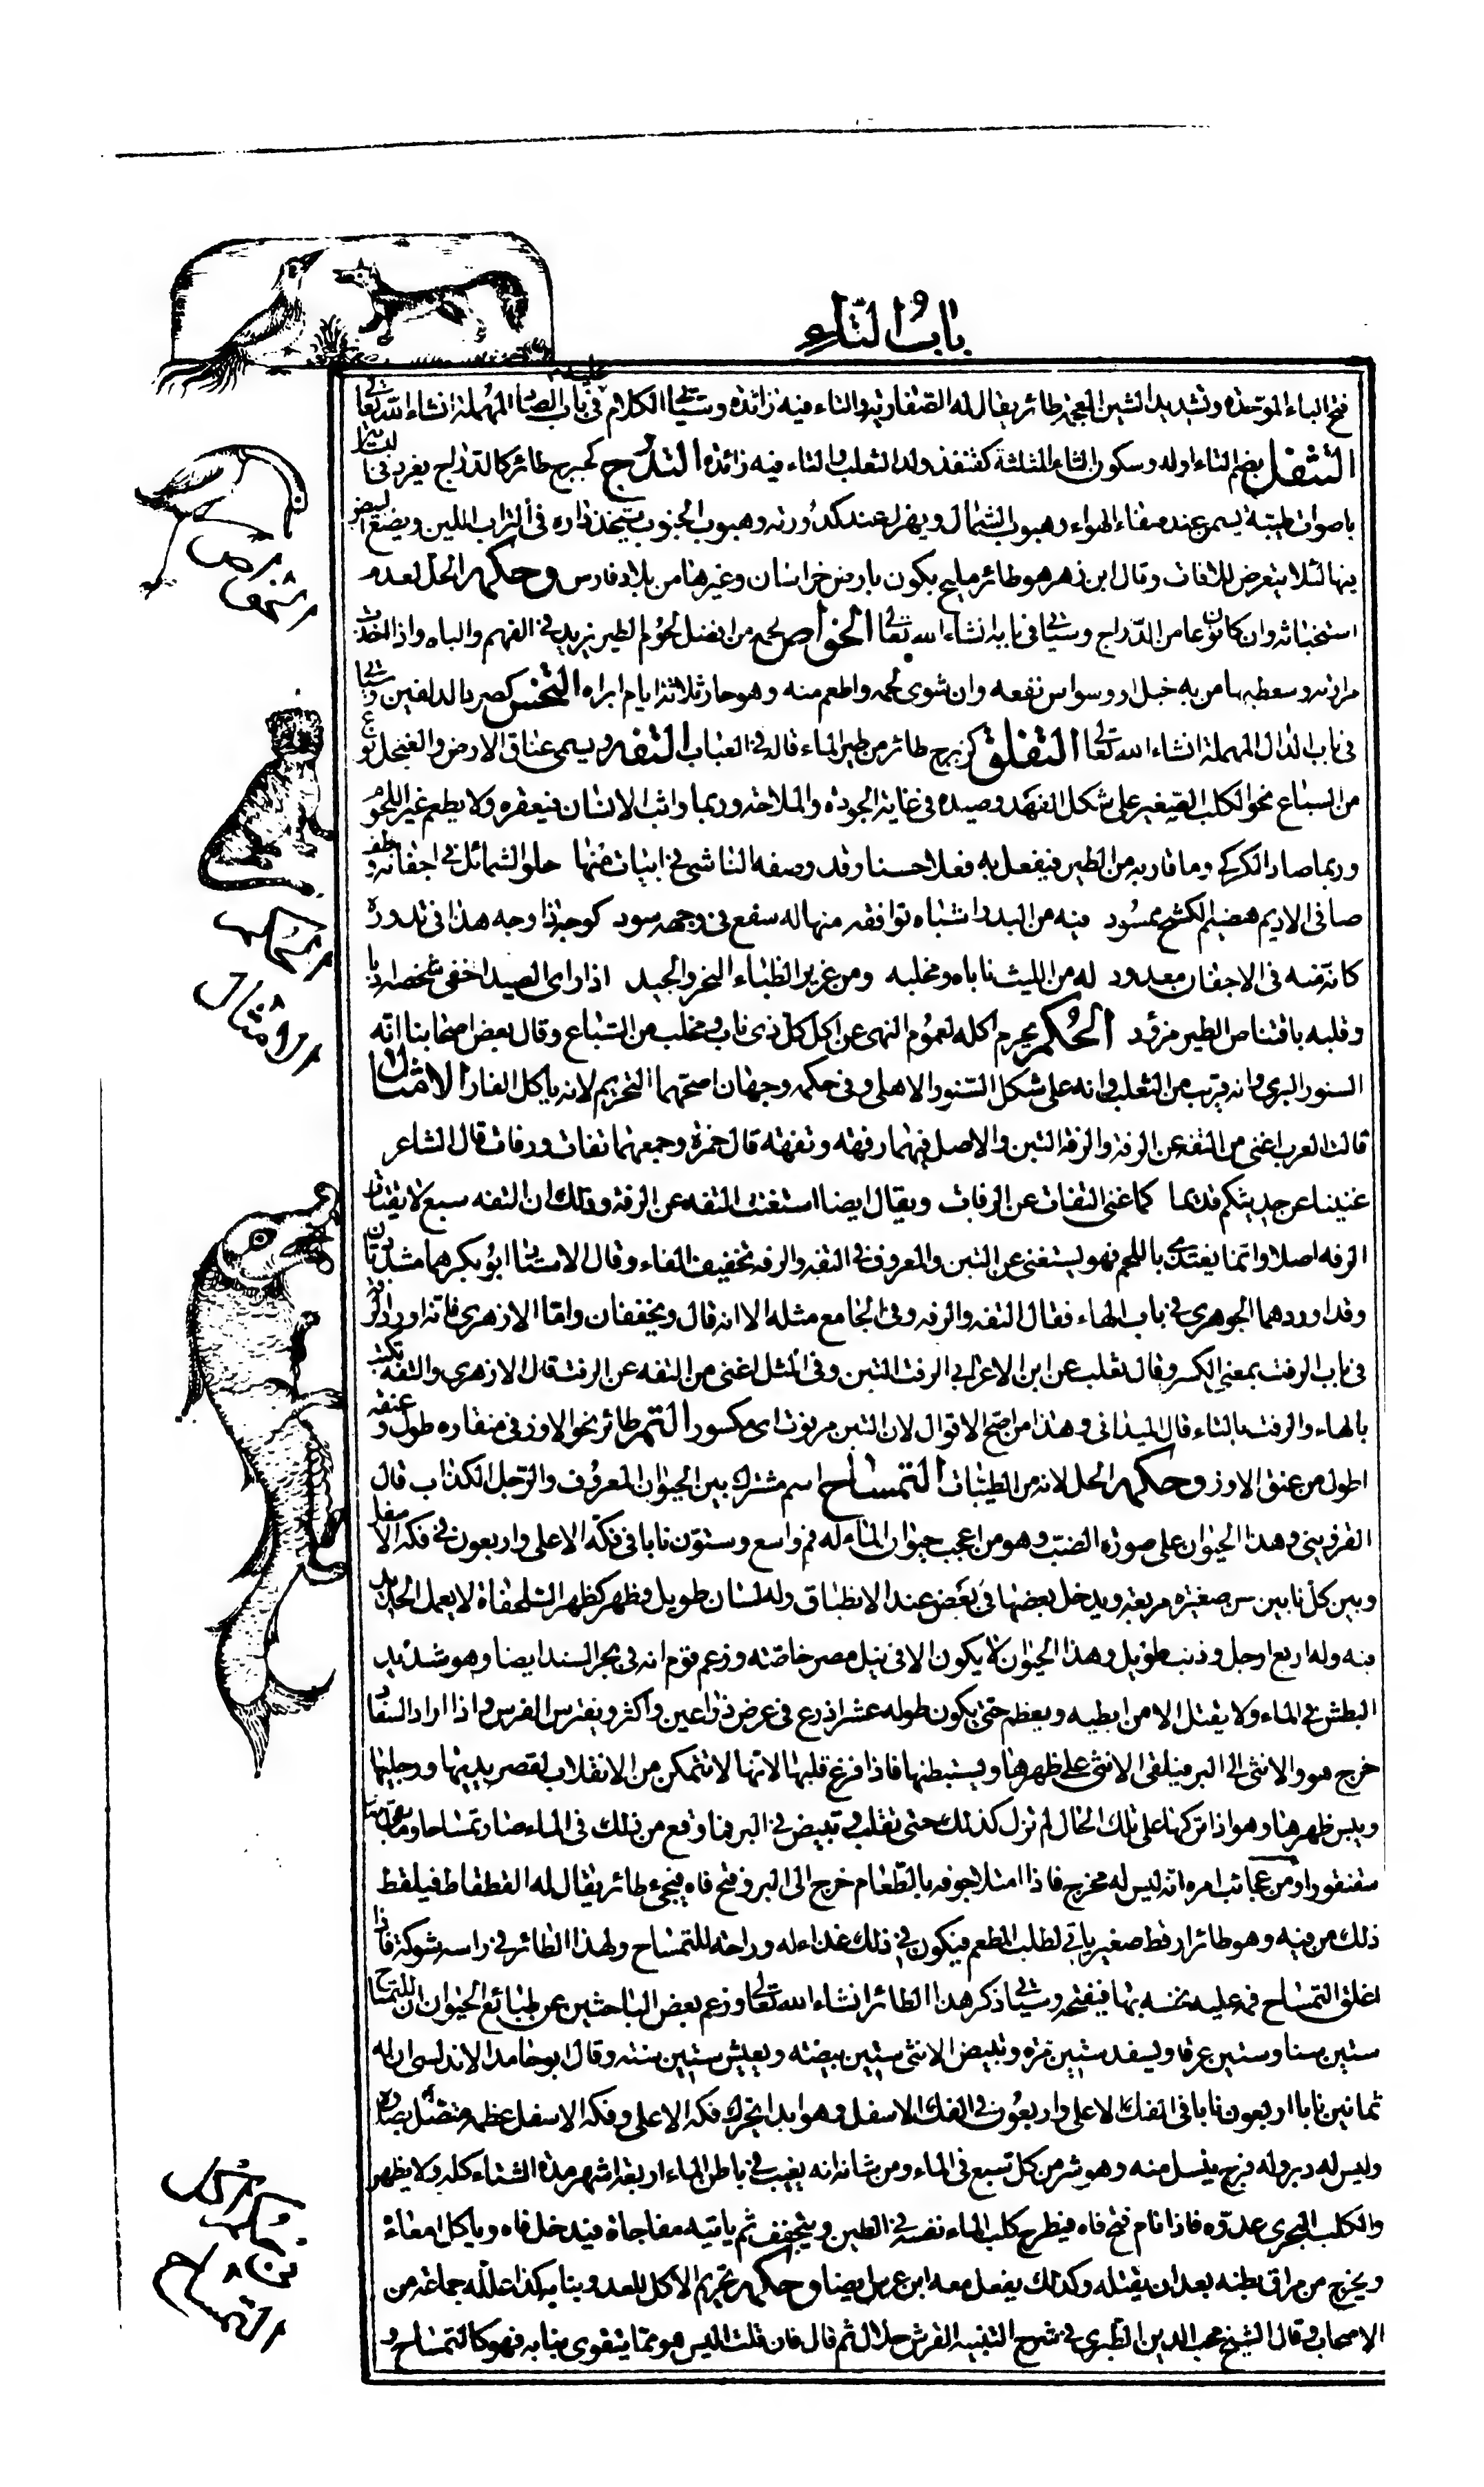 باب التاء
فتح الباء الموحدة وتشديد الشين المعجمة طائر يقال له الصفارية والتاء فيه زائدة وسيأتى الكلام عليه فى باب الصاد المهملة انشاء الله تعالى
التثفل بضم التاء اوله وسكون الثاء المثلثة كقنفذ ولد الثعلب والتاء فيه زائدة التدرج كحبرج طائر كالدراج يغرد فى البساتين
باصوات طيبة يسمن عند صفاء الهواء وهبوب الشمال ويهزل عند كدورته وهبوب الجنوب يتخذ داره فى التراب اللين ويضع البيض
فيها لئلا يتعرض للافات وقال ابن زهر هو طائر مليح يكون بارض خراسان وغيرها من بلاد فارس وحكمه الحل لعدم
استخباثه وان كان نوعا من الدراج وسيأتى فى بابه انشاء الله تعالى الخواص لحمه من افضل لحوم الطير يزيد فى الفهم والباه واذا اخذت
مرارته وسعط بها من به خبل او وسواس نفعه وان شوى لحمه واطعم منه وهو حار ثلاثة ايام ابراه التخس كصرد الدلفين وسيأتى
فى باب الدال المهملة انشاء الله تعالى التفلق كزبرج طائر من طير الماء قاله فى العباب التفه ويسمى عناق الارض والغنجل نوع
من السباع نحو الكلب الصغير على شكل الفهد وصيده فى غاية الجودة والملاحة وربما واثب الانسان فيعقره ولا يطعم غير اللحوم
وربما صاد الكركى وما قاربه من الطير فيفعل به فعلا حسنا وقد وصفه الناشى فى ابيات منها حلو الشمائل فى اجفانه وطف
صافى الاديم هضيم الكشح ممسود فيه من البدر اشباه توافقه منها له سفع فى وجهه سود كوجه ذا وجه هذا فى تدوره
كانه منه فى الاجفان معدود له من الليث ناباه ومخلبه ومن غرير الظباء النحر والجيد اذا راى الصيد اخفى شخصه ادبا
وقلبه باقتناص الطير مزؤد الحكم يحرم اكله لعموم النهى عن اكل كل ذى ناب ومخلب من السباع وقال بعض اصحابنا انه
السنور البرى وانه قريب من الثعلب وانه على شكل السنور الاهلى وفى حكمه وجهان اصحهما التحريم لانه ياكل الفار الامثال
قالت العرب اغنى من التفه عن الرفة والرفة التبن والاصل فيهما رفهة وتفهة قال حمزة وجمعهما تفات ورفات قال الشاعر
غنينا عن حديثكم قديما كما غنى التفات عن الرفات ويقال ايضا استغنت التفه عن الرفة وذلك ان التفه سبع لا يقتات
الرفه اصلا وانما يغتذى باللحم فهو يستغنى عن التبن والمعروف فى التفه والرفه تخفيف الفاء وقال الاستاذ ابو بكر هما مشددتان
وقد اوردهما الجوهرى فى باب الهاء فقال التفه والرفه وفى الجامع مثله الا انه قال ويخففان واما الازهرى فانه اورد الرفة
فى باب الرفت بمعنى الكسر وقال ثعلب عن ابن الاعرابى الرفت التبن وفى المثل اغنى من التفه عن الرفت قال الازهرى والتفه تكتب
بالهاء والرفت بالتاء قال الميدانى وهذا من اصح الاقوال لان التبن مرفوت اى مكسور التمر طائر نحو الاوز فى منقاره طول وعنقه
اطول من عنق الاوز وحكمه الحل لانه من الطيبات التمساح اسم مشترك بين الحيوان المعروف والرجل الكذاب قال
القزوينى وهذا الحيوان على صورة الضب وهو من اعجب حيوان الماء له فم واسع وستون نابا فى فكه الاعلى واربعون فى فكه الاسفل
وبين كل نابين سن صغيرة مربعة ويدخل بعضها فى بعض عند الانطباق وله لسان طويل وظهر كظهر السلحفاة لا يعمل الحديد
فيه وله اربع ارجل وذنب طويل وهذا الحيوان لا يكون الا فى نيل مصر خاصة وزعم قوم انه فى بحر السند ايضا وهو شديد
البطش فى الماء ولا يقتل الا من ابطيه ويعظم حتى يكون طوله عشرا ذرع فى عرض ذراعين واكثر ويفترس الفرس واذا اراد السفاد
خرج هو والانثى الى البر فيلقى الانثى على ظهرها ويستبطنها فاذا فرغ قلبها لانها لا تتمكن من الانقلاب لقصر يديها ورجليها
ويبس ظهرها وهو اذا تركها على تلك الحال لم تزل كذلك حتى تقلب وتبيض فى البر فما وقع من ذلك فى الماء صار تمساحا وما بقى صار
سقنقورا ومن عجائب امره انه ليس له مخرج فاذا امتلا جوفه بالطعام خرج الى البر وفتح فاه فيجئ طائر يقال له القطقاط فيلقط
ذلك من فيه وهو طائر ارقط صغير ياتى لطلب المطعم فيكون فى ذلك غذاء له وراحة للتمساح ولهذا الطائر فى راسه شوكة فاذا
اغلق التمساح فمه عليه نخسه بها فيفتحه وسيأتى ذكر هذا الطائر انشاء الله تعالى وزعم بعض الباحثين عن طبائع الحيوان ان للتمساح
ستين سنا وستين عرقا ويسفد ستين مرة وتبيض الانثى ستين بيضة ويعيش ستين سنة وقال ابو حامد الاندلسى ان له
ثمانين نابا اربعون نابا فى الفك الاعلى واربعون فى الفك الاسفل وهو ابدا يحرك فكه الاعلى وفكه الاسفل عظمه متصل بصدره
وليس له دبر وله فرج ينسل منه وهو شر من كل سبع فى الماء ومن شانه انه يغيب فى باطن الماء اربعة اشهر مدة الشتاء كله ولا يظهر
والكلب البحرى عدوه فاذا نام فتح فاه فيطرح كلب الماء نفسه فى الطين ويتجفف ثم ياتيه مفاجاة فيدخل فاه وياكل امعاءه
ويخرج من مراق بطنه بعد ان يقتله وكذلك يفعل معه ابن عرس ايضا وحكمه تحريم الاكل للعدو بنابه كذا علله جماعة من
الاصحاب وقال الشيخ محب الدين الطبرى فى شرح التنبيه القرش حلال ثم قال فان قلت اليس هو مما يتقوى بنابه فهو كالتمساح و
الحكم
الامثال
التمساح